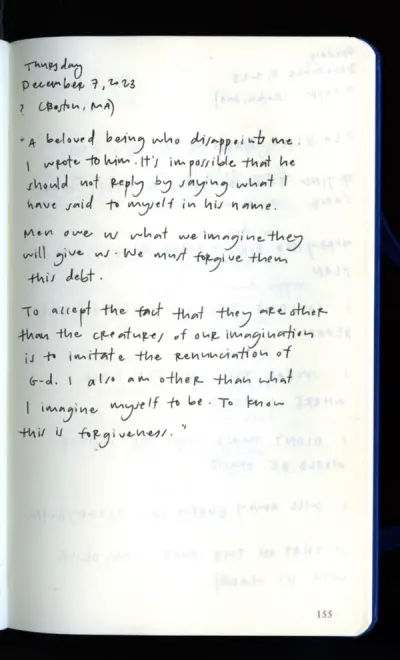 Thursday
December 7, 2023
? (Boston, MA)
"A beloved being who disappoints me.
I wrote to him. It's impossible that he
should not reply by saying what I
have said to myself in his name.
Men owe us what we imagine they
will give us. We must forgive them
this debt.
To accept the fact that they are other
than the creatures of our imagination
is to imitate the renunciation of
G-d. I also am other than what
I imagine myself to be. To know
this is forgiveness."
155